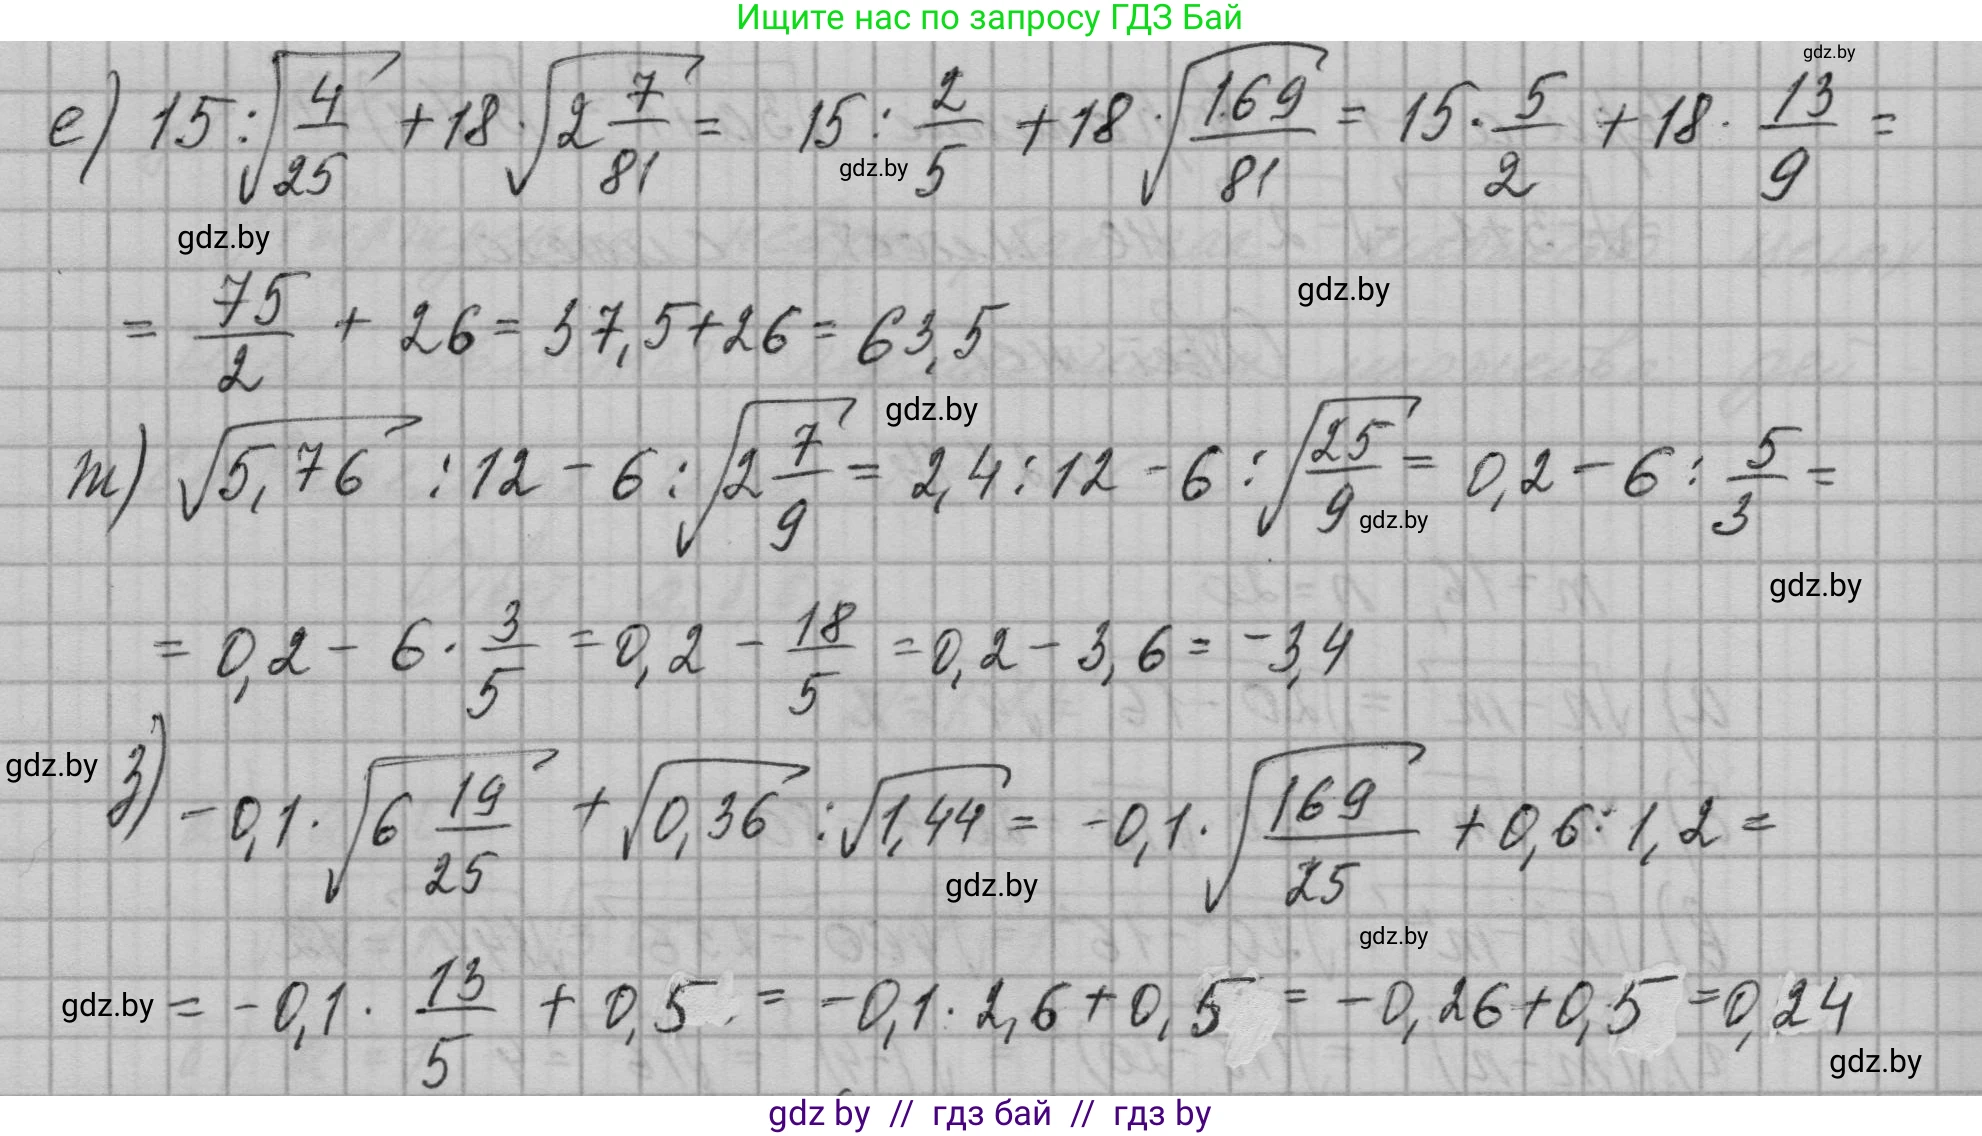 Ищите нас по запросу ГДЗ Бай
gdz.by
е) 15 : √(4/25) + 18 · √(2 7/81) = 15 : 2/5 + 18 · √(169/81) = 15 · 5/2 + 18 · 13/9 =
gdz.by
gdz.by
gdz.by
= 75/2 + 26 = 37,5 + 26 = 63,5
gdz.by
ж) √5,76 : 12 - 6 : √(2 7/9) = 2,4 : 12 - 6 : √(25/9) = 0,2 - 6 : 5/3 =
gdz.by
gdz.by
= 0,2 - 6 · 3/5 = 0,2 - 18/5 = 0,2 - 3,6 = -3,4
gdz.by
з) -0,1 · √(6 19/25) + √0,36 : √1,44 = -0,1 · √(169/25) + 0,6 : 1,2 =
gdz.by
gdz.by
gdz.by
= -0,1 · 13/5 + 0,5 = -0,1 · 2,6 + 0,5 = -0,26 + 0,5 = 0,24
gdz.by
gdz by // гдз бай // гдз by